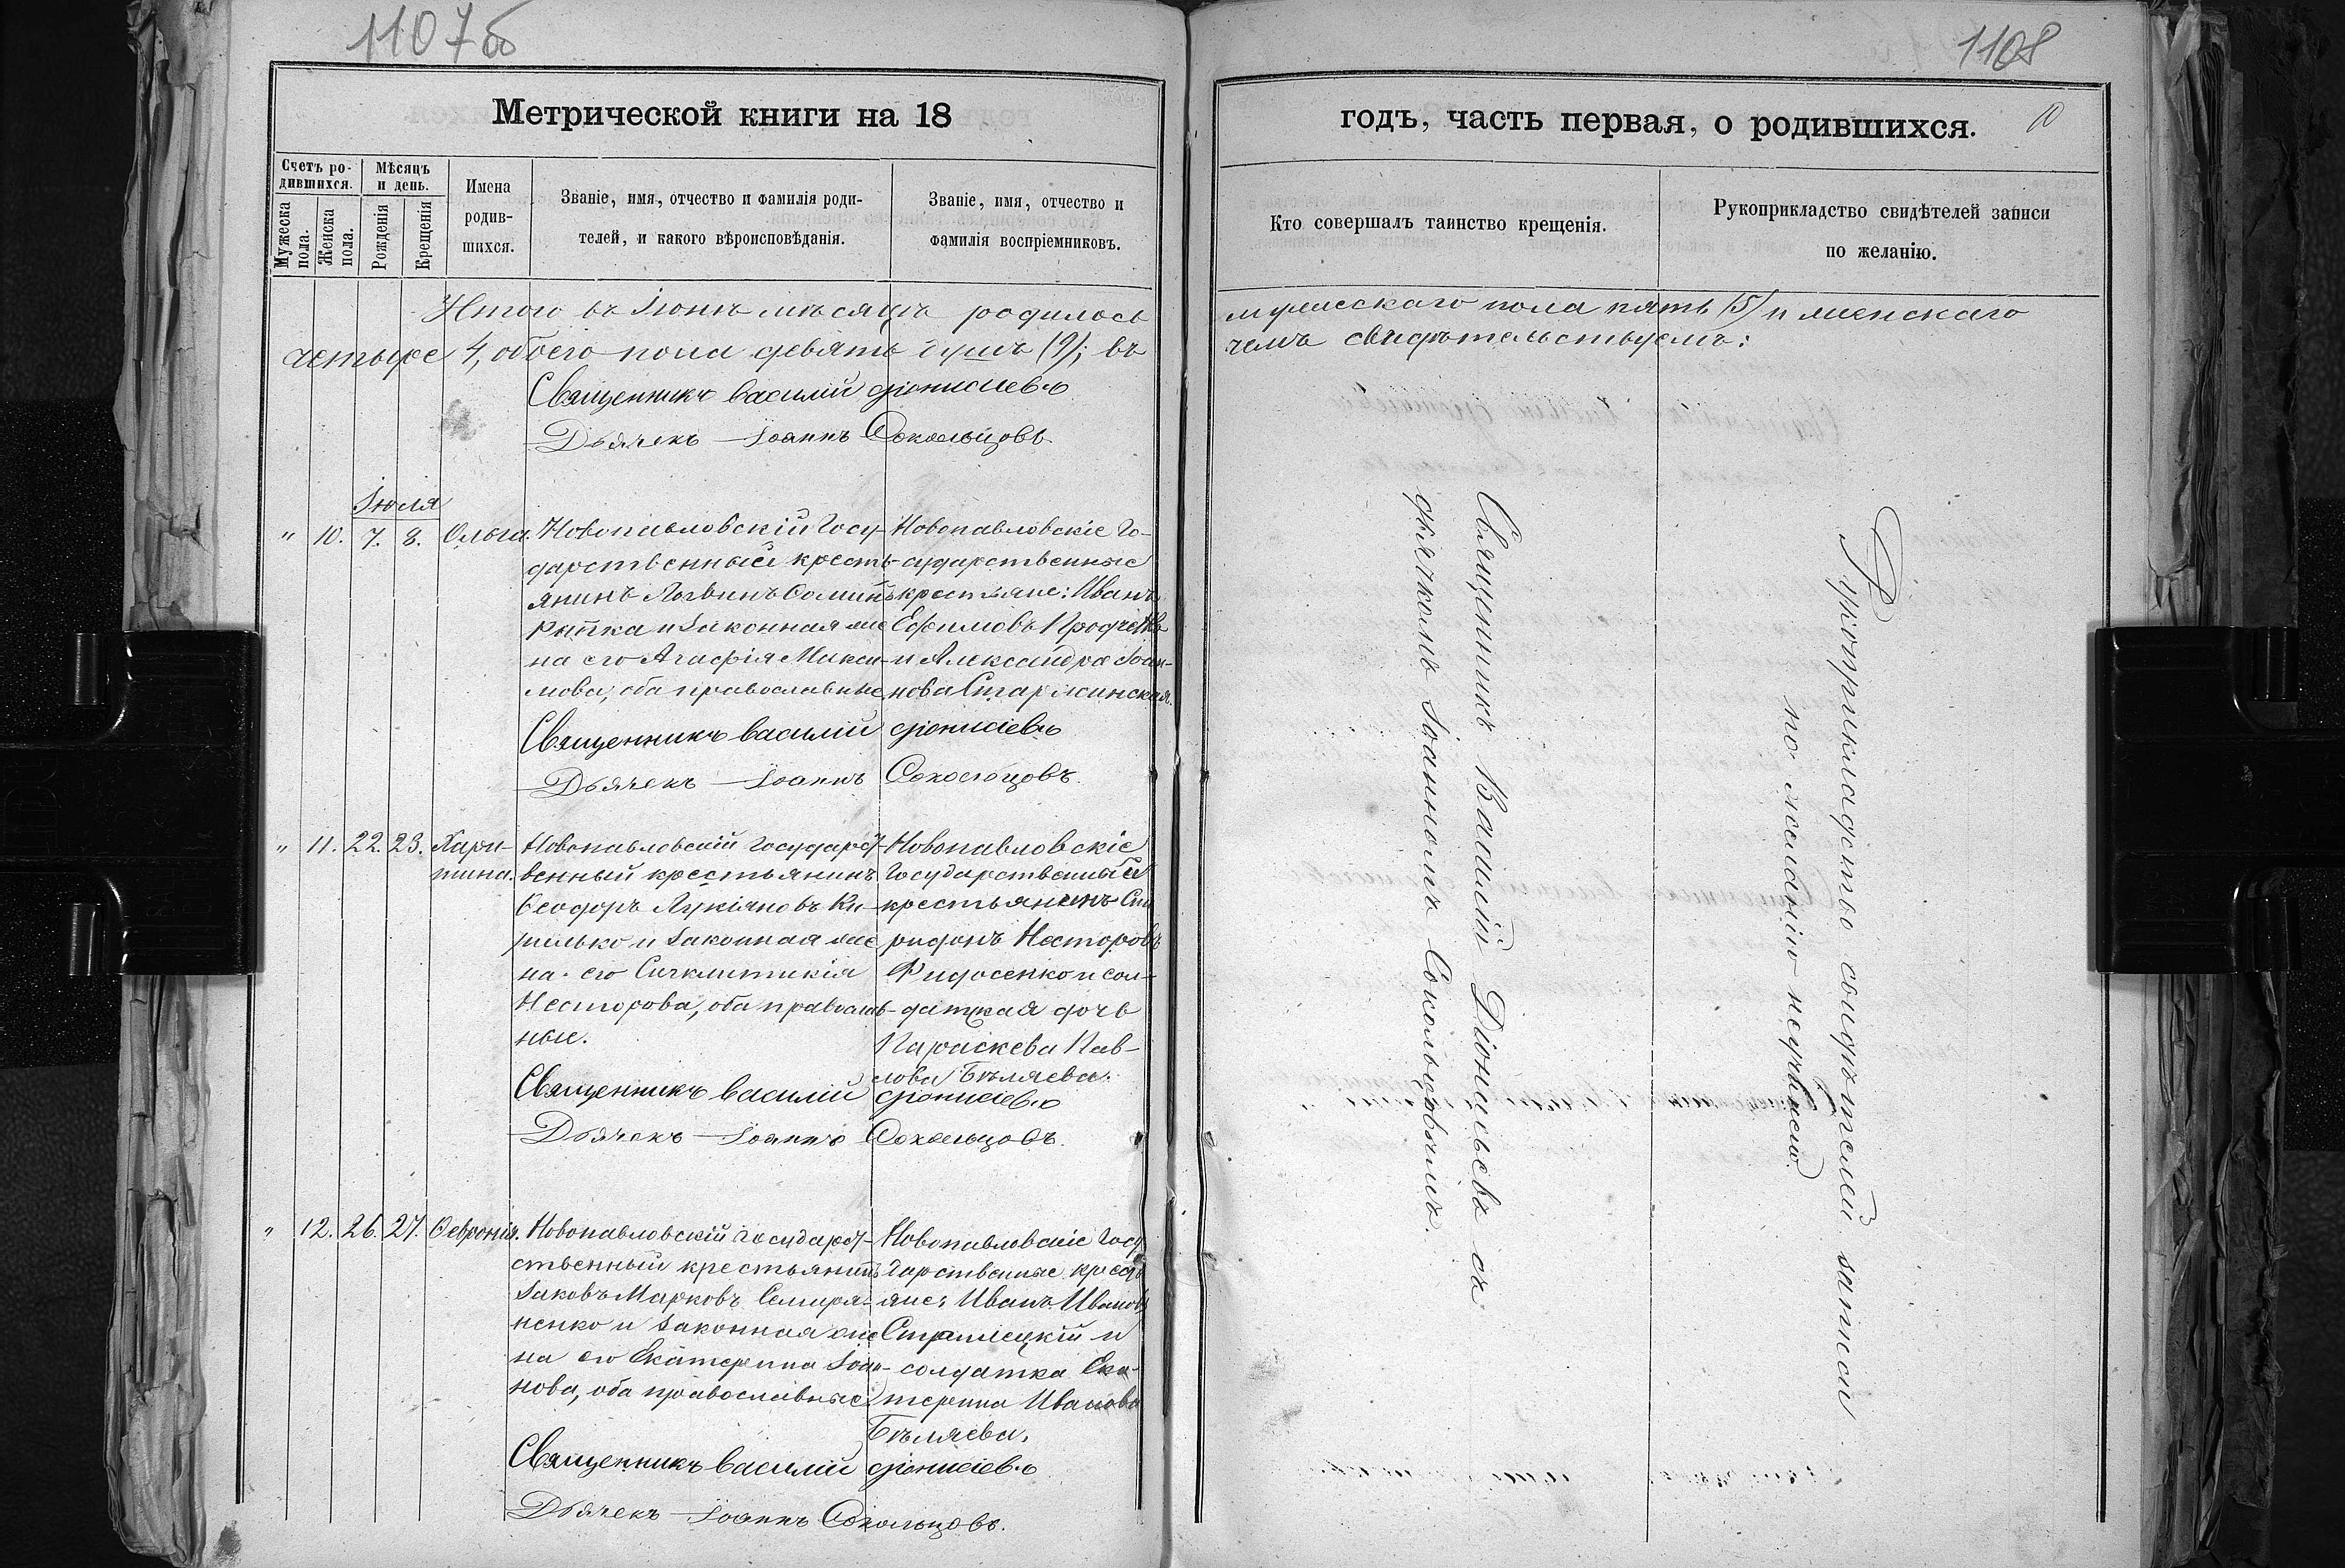 1107б
Метрической книги на 18
Счетъ ро-
дившихся.
Мѣсяцъ
и день.
Мужеска
пола.
Женска
пола.
Рожденія
Крещенія
Имена
родив-
шихся.
Званіе, имя, отчество и фамилія роди-
телей, и какого вѣроисповѣданія.
Званіе, имя, отчество и
фамилія воспріемниковъ.
Итого въ Іюнѣ мѣсяцѣ родилось
четыре 4, обоего пола девять душъ (9); въ
Священникъ Василій Діонисіевъ
Дьячекъ Іоаннъ Сокольцовъ.
Іюля
" 10. 7. 8. Ольга.
Новопавловскій Госу-
дарственный кресть-
янинъ Логвинъ Соминъ
и законная же-
на его Агафія Макси-
мова, оба православные
Новопавловскіе Го-
сударственные
крестьяне: Иванъ
Ефимовъ
и Александра Іоан-
нова Старжинская.
Священникъ Василій Діонисіевъ
Дьячекъ Іоаннъ Сокольцовъ.
" 11. 22. 23. Хари-
тина.
Новопавловскій Государст-
венный крестьянинъ
Ѳеодоръ Лукіяновъ Ки-
рилько и законная же
на его Сигклитикія
Несторова, оба православ-
ные.
Новопавловскіе
Государственный
крестьянинъ Спи
ридонъ Несторовъ
Фидосенко и сол-
датская дочь
Параскева Пав-
лова Бѣляева.
Священникъ Василій Діонисіевъ
Дьячекъ Іоаннъ Сокольцовъ.
" 12. 26. 27. Ѳевронія.
Новопавловскій государ-
ственный крестьянинъ
Іаковъ Марковъ
и законная же
на его Екатерина Іоан-
нова, оба православные
Новопавловскіе Госу
дарственные кресть
яне: Иванъ Ивановъ
и
солдатка Ека-
терина Иванова
Бѣляева.
Священникъ Василій Діонисіевъ
Дьячекъ Іоаннъ Сокольцовъ.
1108
годъ, часть первая, о родившихся.
10
Кто совершалъ таинство крещенія.
Рукоприкладство свидѣтелей записи
по желанію.
мужескаго пола пять (5) и женскаго
чемъ свидѣтельствуемъ:
Священникъ Василій Діонисьевъ съ
дьячкомъ Іоанномъ Сокольцовымъ.
Рукоприкладство свидѣтелей записи
по желанію